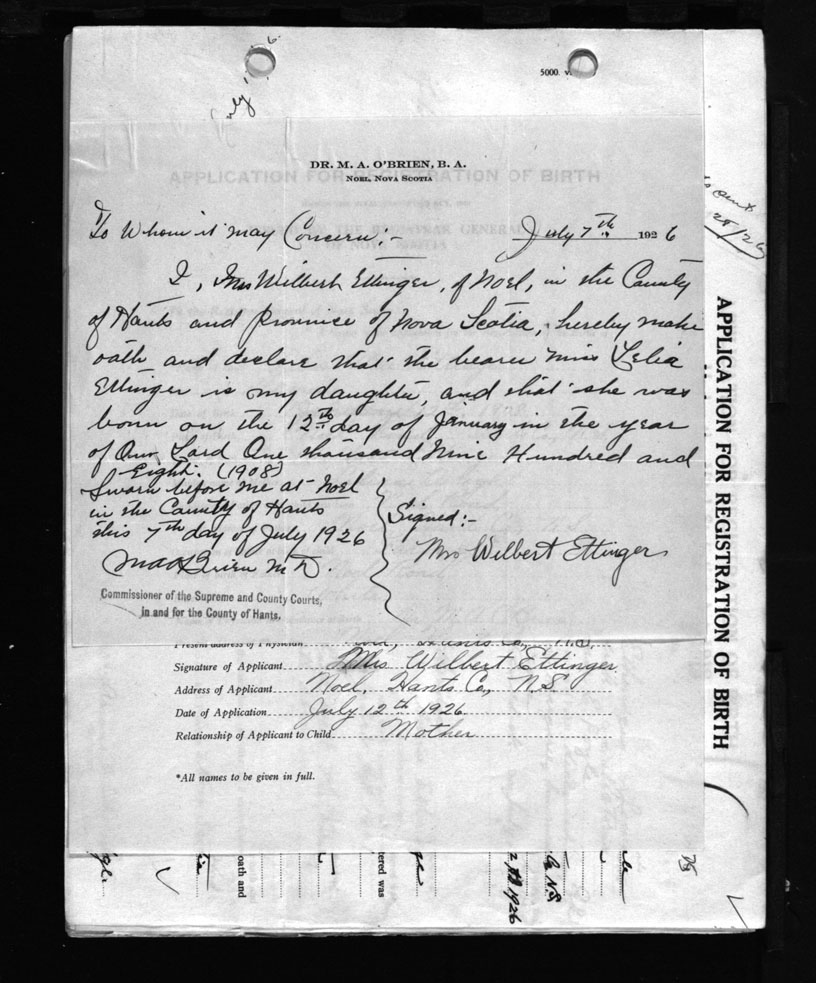 5000.
DR. M. A. O'BRIEN, B. A.
NOEL, NOVA SCOTIA
APPLICATION FOR REGISTRATION OF BIRTH
To Whom it may Concern:- July 7th 1926
I, Mrs Wilbert Ettinger, of Noel, in the County
of Hants and province of Nova Scotia, hereby make
oath and declare that the bearer Miss Lelia
Ettinger is my daughter, and that she was
born on the 12th day of January in the year
of Our Lord One thousand Nine Hundred and
Eight. (1908)
Sworn before me at Noel
in the County of Hants
this 7th day of July 1926
M A O'Brien M.D.
Signed:-
Mrs Wilbert Ettinger
Commissioner of the Supreme and County Courts,
in and for the County of Hants.
Present address of Physician
Signature of Applicant Mrs Wilbert Ettinger
Address of Applicant Noel, Hants Co, N.S
Date of Application July 12th 1926
Relationship of Applicant to Child Mother
*All names to be given in full.
APPLICATION FOR REGISTRATION OF BIRTH
28/26
oath and
tered was
N.S.
1926